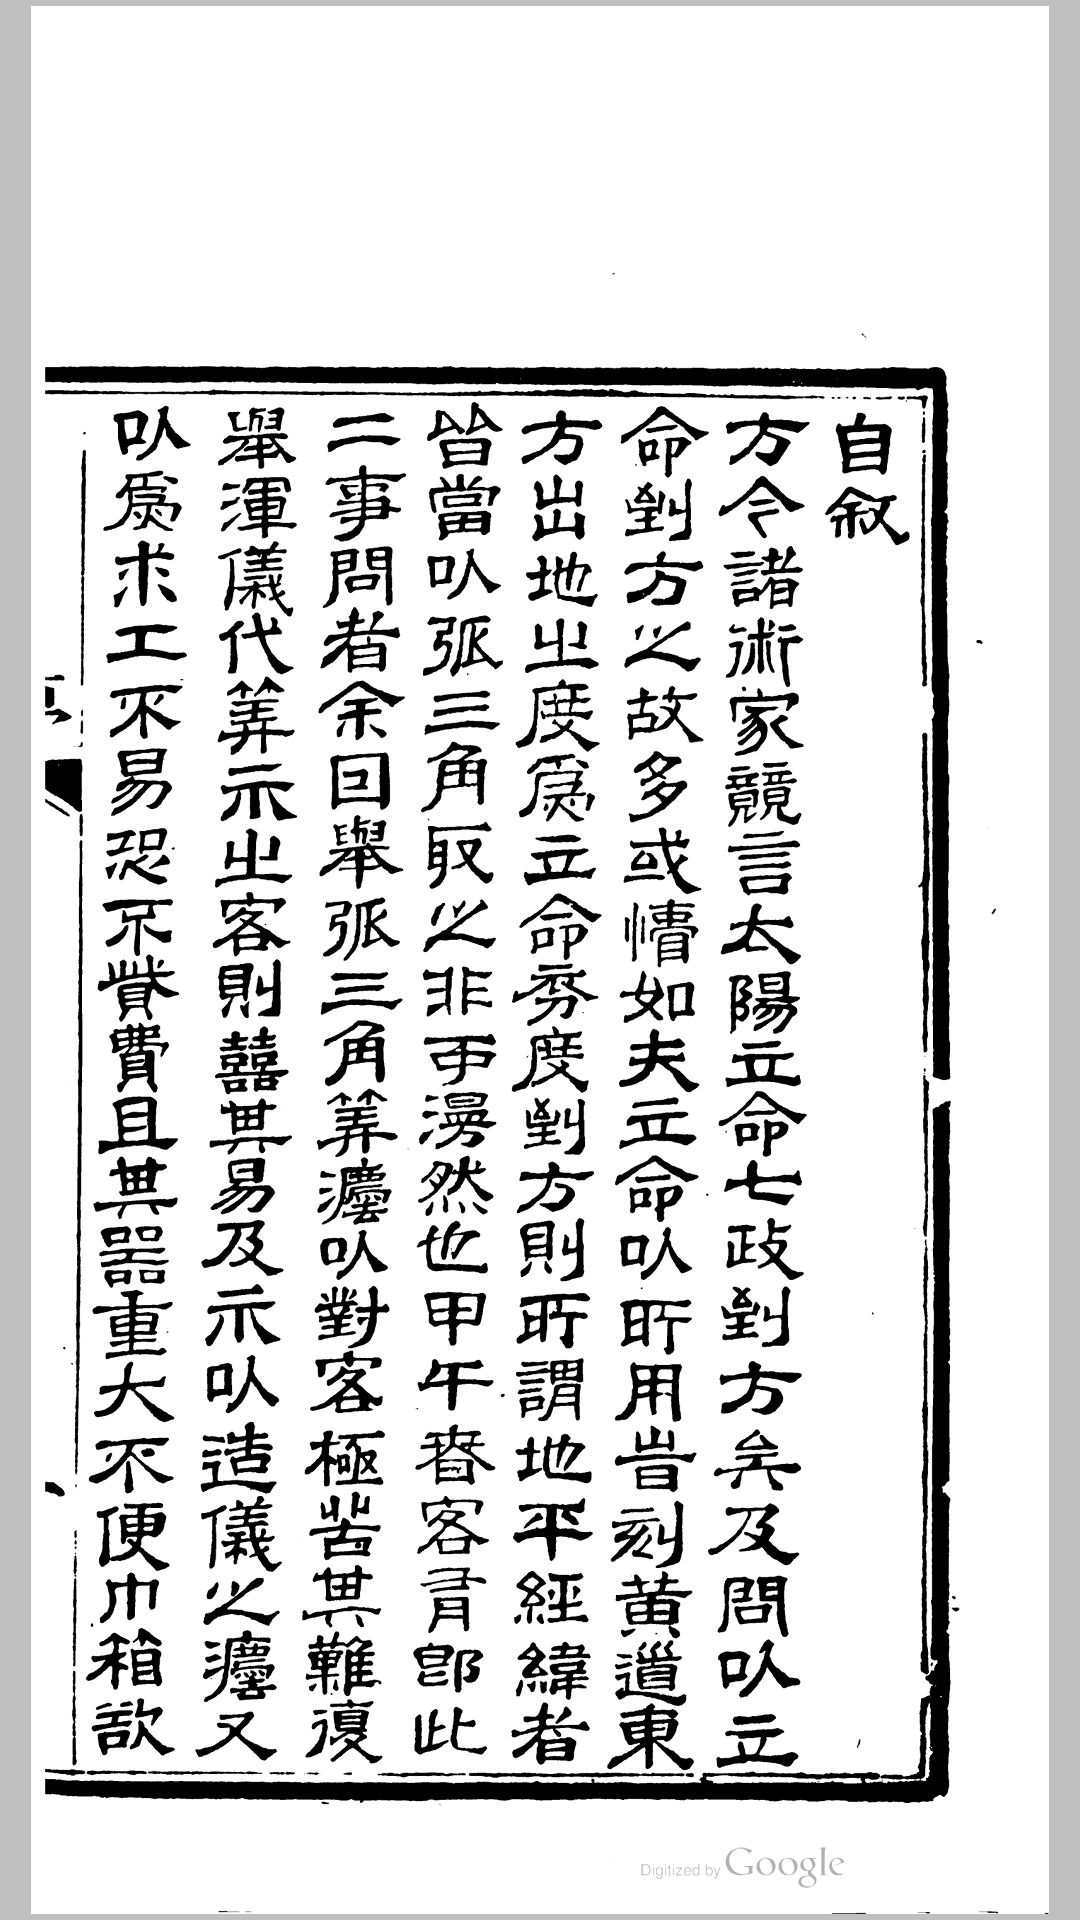 自叙
方今諸術家競言太陽立命七政到方矣及問以立
命到方之故多或懵如夫立命以所用旹刻黃道東
方出地之度爲立命度到方則所謂地平經緯者
皆當以弧三角取之非可漫然也甲午春客有即此
二事問者余囙舉弧三角筭灋以對客極苦其難復
舉渾儀代筭示之客則囍其易及示以造儀之灋又
以爲求工不易恐不貲費且其器重大不便巾箱欲
Digitized by Google